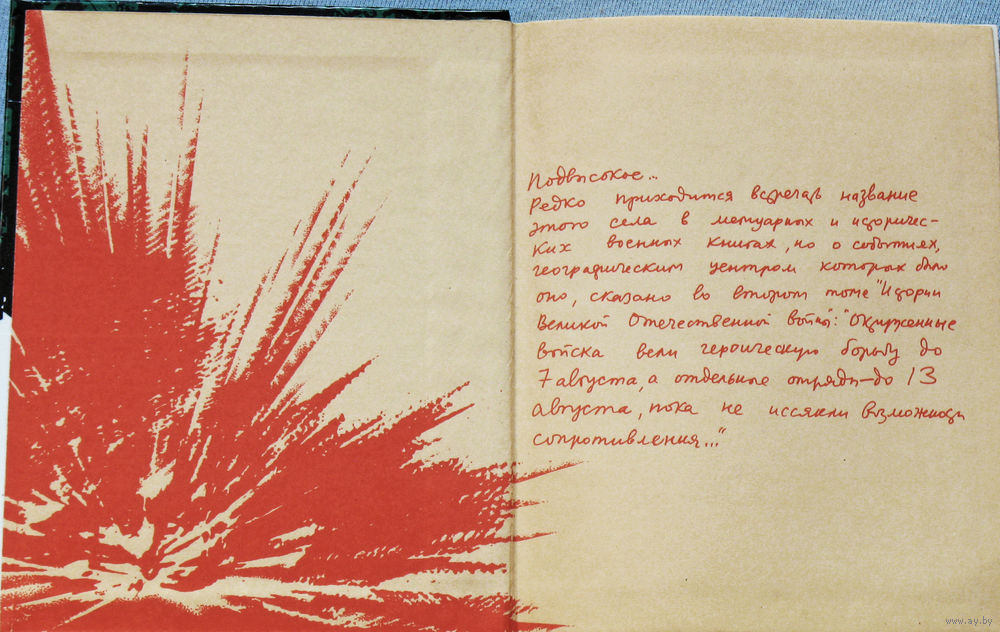 Подвысокое...
Редко приходится встречать название
этого села в мемуарных и историчес-
ких военных книгах, но о событиях,
географическим центром которых было
оно, сказано во втором томе "Истории
Великой Отечественной войны": "Окруженные
войска вели героическую борьбу до
7 августа, а отдельные отряды-до 13
августа, пока не иссякли возможности
сопротивления..."
www.ay.by